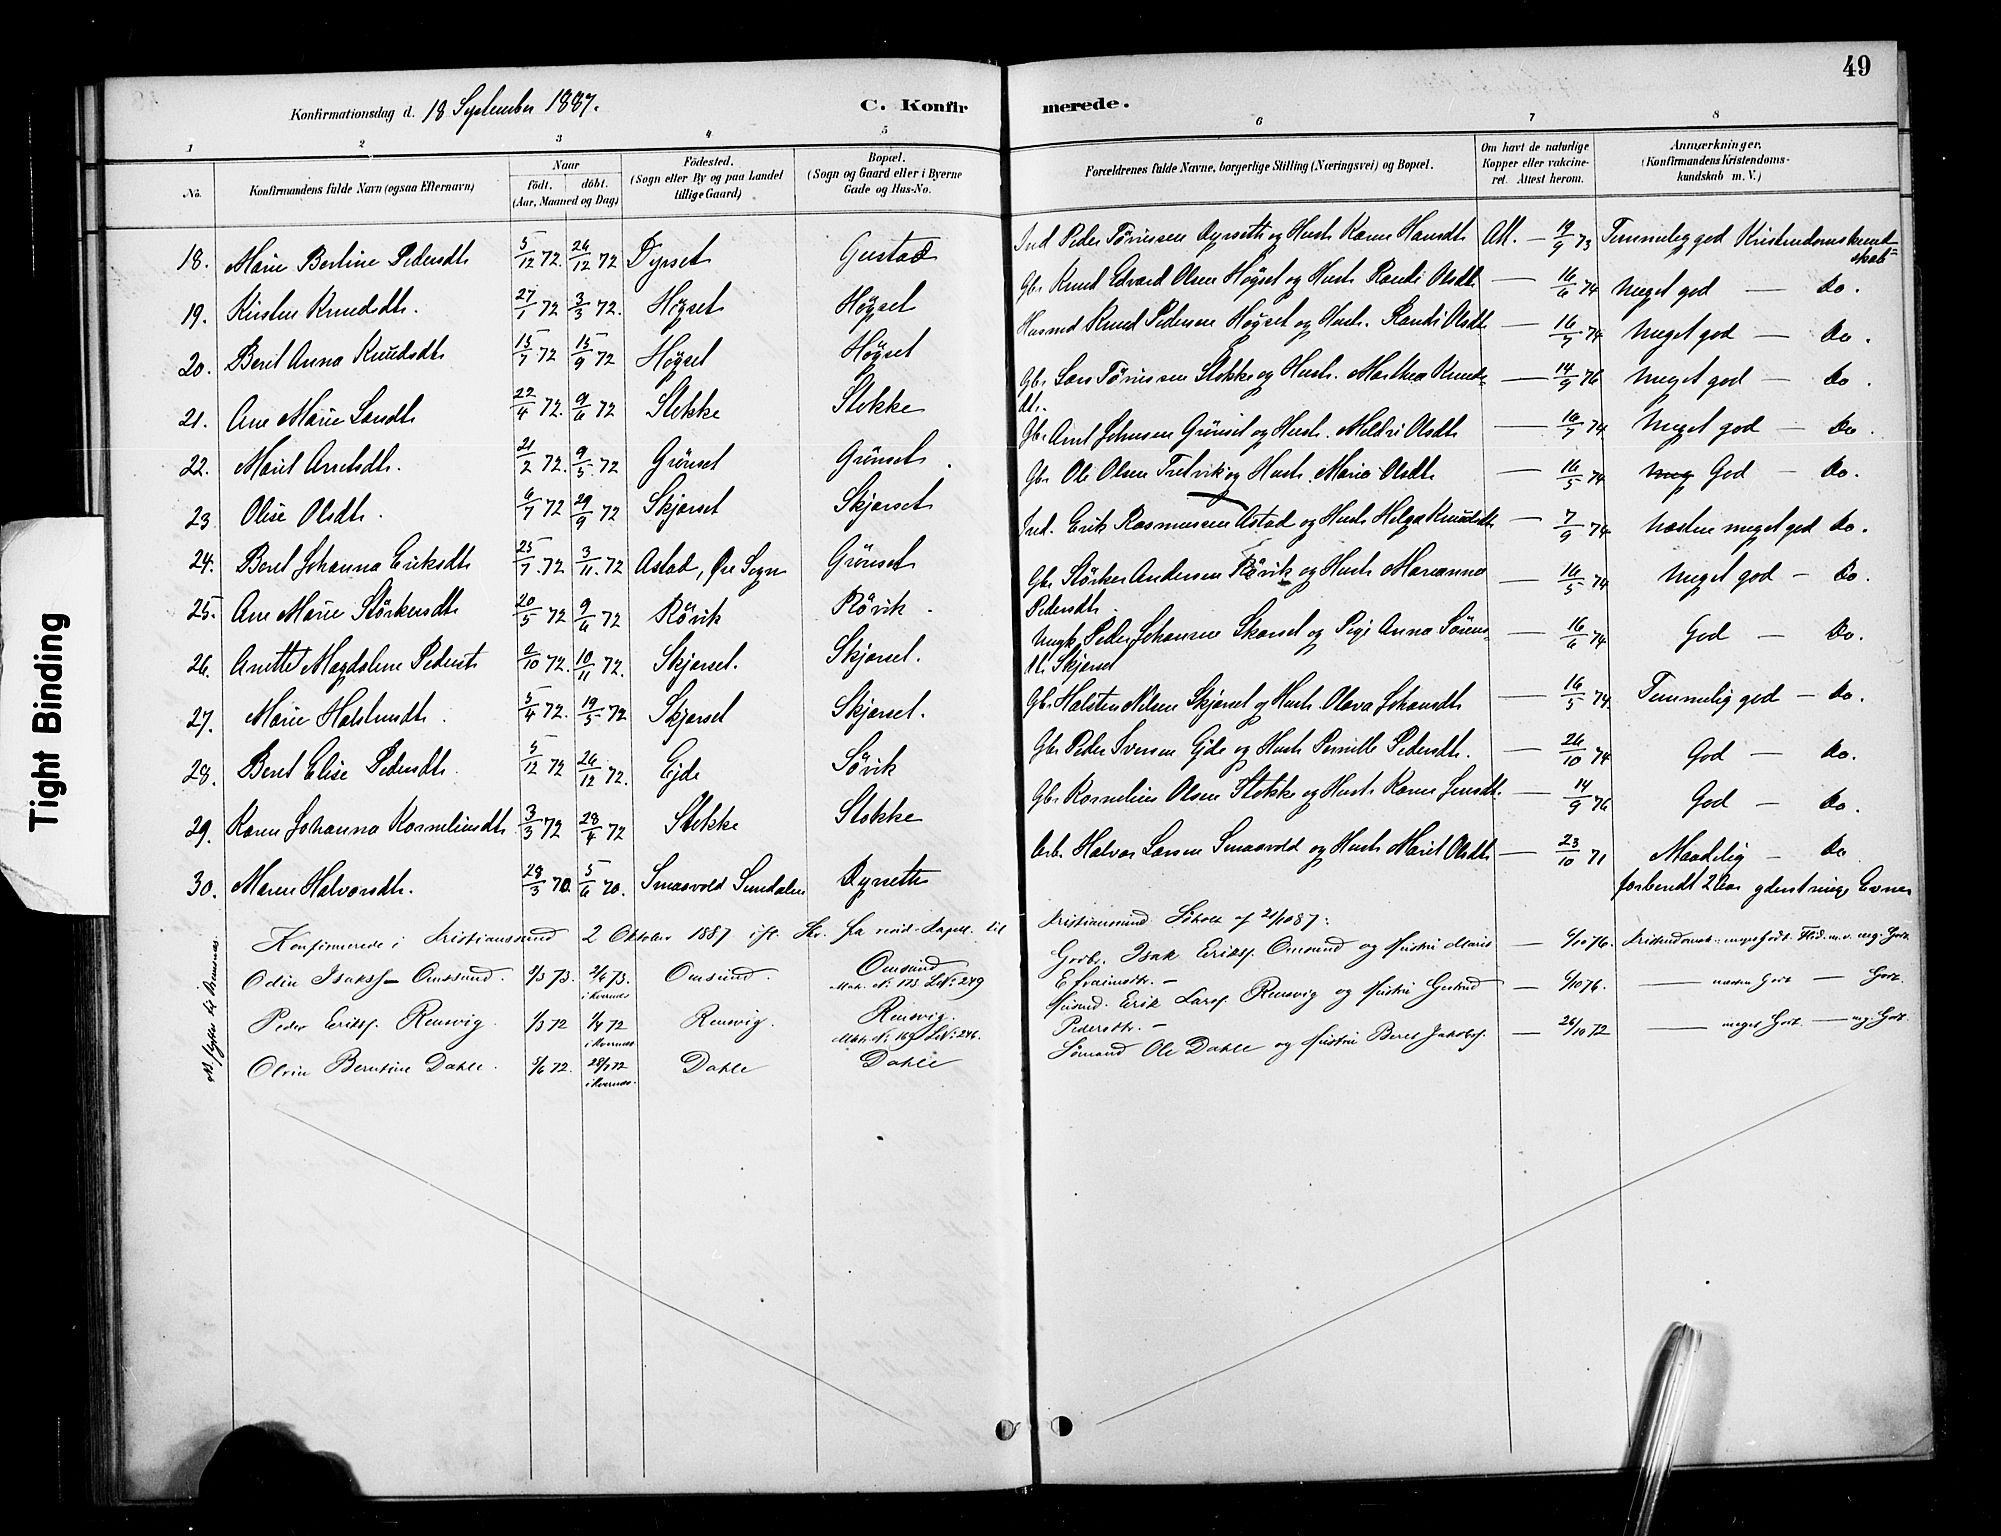 49
Konfirmationsdag d. 18 September 1887. C. Konfirmerede.
1 2 3 4 5 6 7 8
No. Konfirmandens fulde Navn (ogsaa Efternavn) Naar födt. döbt. (Aar, Maaned og Dag) Födested. (Sogn eller By og paa Landet tillige Gaard) Bopæl. (Sogn og Gaard eller i Byerne Gade og Hus-No. Forældrenes fulde Navne, borgerlige Stilling (Næringsvei) og Bopæl. Om havt de naturlige Kopper eller vakcineret. Attest herom. Anmærkninger. (Konfirmandens Kristendomskundskab m. V.)
18. Marie Bertine Pedersdt. 5/12 72 26/12 72 Dyrset Gustad Ind. Peder Tönnesen Dyrseth og Hust. Karen Hansdt. Att. — 19/9 73 Temmelig god Kristendomskundskab
19. Kirsten Knudsdt. 27/1 72 3/3 72. Högset Högset Gbr. Knud Edvard Olsen Högset og Hust. Randi Olsdt. — 16/6 74 Meget god — do.
20. Beret Anna Knudsdt. 15/7 72 15/9 72 Högset Högset Husmd Knud Pedersen Högset og Hust. Randi Olsdt. — 16/5 74 Meget god — do.
21. Ane Marie Larsdt. 22/4 72. 9/6 72 Stokke Stokke Gbr. Lars Tönnesen Stokke og Hust. Marthea Knudsdt. — 14/9 76 Meget god — do.
22. Maret Arntsdt. 21/2 72. 9/5 72 Grönset Grönset. Gbr. Arnt Johnsen Grönset og Hust. Meldri Olsdt. — 16/7 74 Meget god — do.
23 Olise Olsdt. 6/7 72 29/9 72 Skjörset Skjörset Gbr. Ole Olsen Tretvik og Hust. Maria Olsdt. — 16/5 74 Meg God — do.
24. Beret Johanna Eriksdt. 25/7 72 3/11 72 Astad, Öre Sogn Grönset Ind. Erik Rasmussen Astad og Hust. Helga Knudsdt. — 7/9 74 Næsten meget god do.
25. Ane Marie Störkersdt. 20/5 72 9/6 72 Rövik Rövik. Gbr. Störker Andersen Rövik og Hust. Marianna Pedersdt. — 16/5 74 Meget god — do.
26. Anette Magdalene Pedersdt. 2/10 72. 10/11 72. Skjörset. Skjörset. Ungk. Peder Johansen Skarset og Pige Anna Sörensdt. Skjörset — 16/6 74 God — do.
27. Marie Halstensdt. 5/4 72. 19/5 72 Skjörset Skjörset. Gbr. Halsten Nilsen Skjörset og Hust. Olava Johansdt. — 16/5 74 Temmelig god — do.
28. Beret Elise Pedersdt. 5/12 72 26/12 72. Ejde Sövik Gbr. Peder Iversen Ejde og Hust. Pernille Pedersdt. — 26/10 74 God — do.
29. Karen Johanna Korneliusdt. 3/3 72 28/4 72 Stokke Stokke Gbr. Kornelius Olsen Stokke og Hust. Karen Jensdt. — 14/9 76 God — do.
30. Maren Halvorsdt. 28/3 70 5/6 70. Smaavold Sundalen Dyrseth Arb. Halvor Larsen Smaavold og Hust. Maret Olsdt. — 23/10 71 Maadelig — do
forberedt 2 Aar yderst ringe Evner
Konfirmerede i Kristianssund 2 Oktober 1887 ifl. Skr. fra resid. Kapell. til Kristiansund af 21/10 87:
Odin Isakss. Omsund. 2/3 73. 2/6 73. i Kvernes Omsund. Omsund Matr. No 173 LNo 249 Gbr. Isak Erikss. Omsund og Hustru Marit Efraimsdtr. — 6/10 76. Kristendomsk. meget godt. Flid m. v. mg. Godt.
Peder Erikss. Rensvig. 1/3 72 1/4 72 i Kvernes Rensvig. Rensvig. Matr. No 169 LNo 246. Husmd. Erik Larss. Rensvig og Hustru Gertrud Pedersdtr. — 6/10 76. — næsten Godt — Godt.
Olvin Berntine Dahle. 5/6 72. 29/9 72 i Kvernes. Dahle Dahle Sömand Ole Dahle og Hustru Beret Jakobsd. — 26/10 72 — meget Godt. — mg. Godt.
Tight Binding